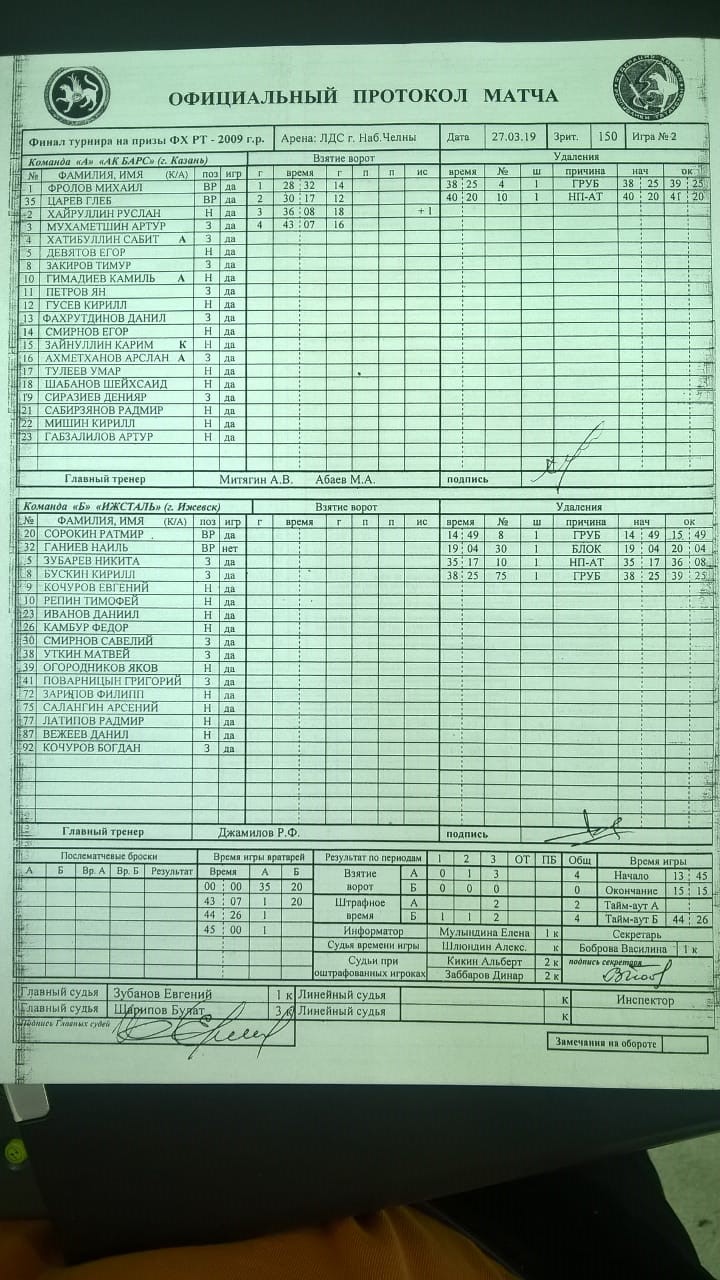 ОФИЦИАЛЬНЫЙ ПРОТОКОЛ МАТЧА
Финал турнира на призы ФХ РТ - 2009 г.р. Арена: ЛДС г. Наб.Челны Дата 27.03.19 Зрит. 150 Игра № 2
Команда «А» «АК БАРС» (г. Казань) Взятие ворот Удаления
№ ФАМИЛИЯ, ИМЯ (К/А) поз игр г время г п п ис время № ш причина нач ок
1 ФРОЛОВ МИХАИЛ ВР да 1 28 32 14 38 25 4 1 ГРУБ 38 25 39 25
35 ЦАРЕВ ГЛЕБ ВР да 2 30 17 12 40 20 10 1 НП-АТ 40 20 41 20
2 ХАЙРУЛЛИН РУСЛАН Н да 3 36 08 18 +1
3 МУХАМЕТШИН АРТУР З да 4 43 07 16
4 ХАТИБУЛЛИН САБИТ А З да
5 ДЕВЯТОВ ЕГОР Н да
8 ЗАКИРОВ ТИМУР З да
10 ГИМАДИЕВ КАМИЛЬ А Н да
11 ПЕТРОВ ЯН З да
12 ГУСЕВ КИРИЛЛ Н да
13 ФАХРУТДИНОВ ДАНИЛ З да
14 СМИРНОВ ЕГОР Н да
15 ЗАЙНУЛЛИН КАРИМ К Н да
16 АХМЕТХАНОВ АРСЛАН А З да
17 ТУЛЕЕВ УМАР Н да
18 ШАБАНОВ ШЕЙХСАИД Н да
19 СИРАЗИЕВ ДЕНИЯР З да
21 САБИРЗЯНОВ РАДМИР Н да
22 МИШИН КИРИЛЛ Н да
23 ГАБЗАЛИЛОВ АРТУР Н да
Главный тренер Митягин А.В. Абаев М.А. подпись
Команда «Б» «ИЖСТАЛЬ» (г. Ижевск) Взятие ворот Удаления
№ ФАМИЛИЯ, ИМЯ (К/А) поз игр г время г п п ис время № ш причина нач ок
20 СОРОКИН РАТМИР ВР да 14 49 8 1 ГРУБ 14 49 15 49
32 ГАНИЕВ НАИЛЬ ВР нет 19 04 30 1 БЛОК 19 04 20 04
5 ЗУБАРЕВ НИКИТА З да 35 17 10 1 НП-АТ 35 17 36 08
8 БУСКИН КИРИЛЛ З да 38 25 75 1 ГРУБ 38 25 39 25
9 КОЧУРОВ ЕВГЕНИЙ Н да
10 РЕПИН ТИМОФЕЙ Н да
23 ИВАНОВ ДАНИИЛ Н да
26 КАМБУР ФЕДОР Н да
30 СМИРНОВ САВЕЛИЙ З да
38 УТКИН МАТВЕЙ З да
39 ОГОРОДНИКОВ ЯКОВ Н да
41 ПОВАРНИЦЫН ГРИГОРИЙ З да
72 ЗАРИПОВ ФИЛИПП Н да
75 САЛАНГИН АРСЕНИЙ Н да
77 ЛАТИПОВ РАДМИР Н да
87 ВЕЖЕЕВ ДАНИЛ Н да
92 КОЧУРОВ БОГДАН З да
Главный тренер Джамилов Р.Ф. подпись
Послематчевые броски Время игры вратарей Результат по периодам 1 2 3 ОТ ПБ Общ Время игры
А Б Вр. А Вр. Б Результат Время А Б Взятие ворот А 0 1 3 4 Начало 13 45
00 00 35 20 Б 0 0 0 0 Окончание 15 15
43 07 1 20 Штрафное время А 2 2 Тайм-аут А
44 26 1 Б 1 1 2 4 Тайм-аут Б 44 26
45 00 1 Информатор Мулындина Елена 1 к Секретарь
Судья времени игры Шлюндин Алекс. к Боброва Василина 1 к
Судьи при оштрафованных игроках Кикин Альберт 2 к подпись секретаря
Заббаров Динар 2 к
Главный судья Зубанов Евгений 1 к Линейный судья к Инспектор
Главный судья Шарипов Булат 3 к Линейный судья к
Подпись Главных судей
Замечания на обороте